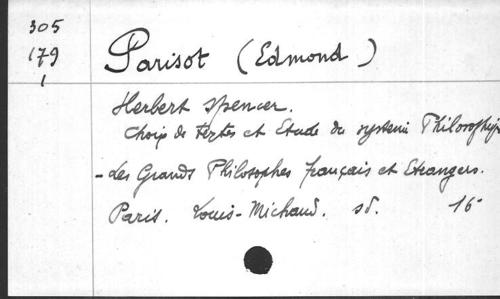 305
179
1
Parisot (Edmond)
Herbert Spencer.
Choix de textes et Etude du système Philosophiq
- Les Grands Philosophes français et Etrangers.
Paris. Louis-Michaud. sd. 16°